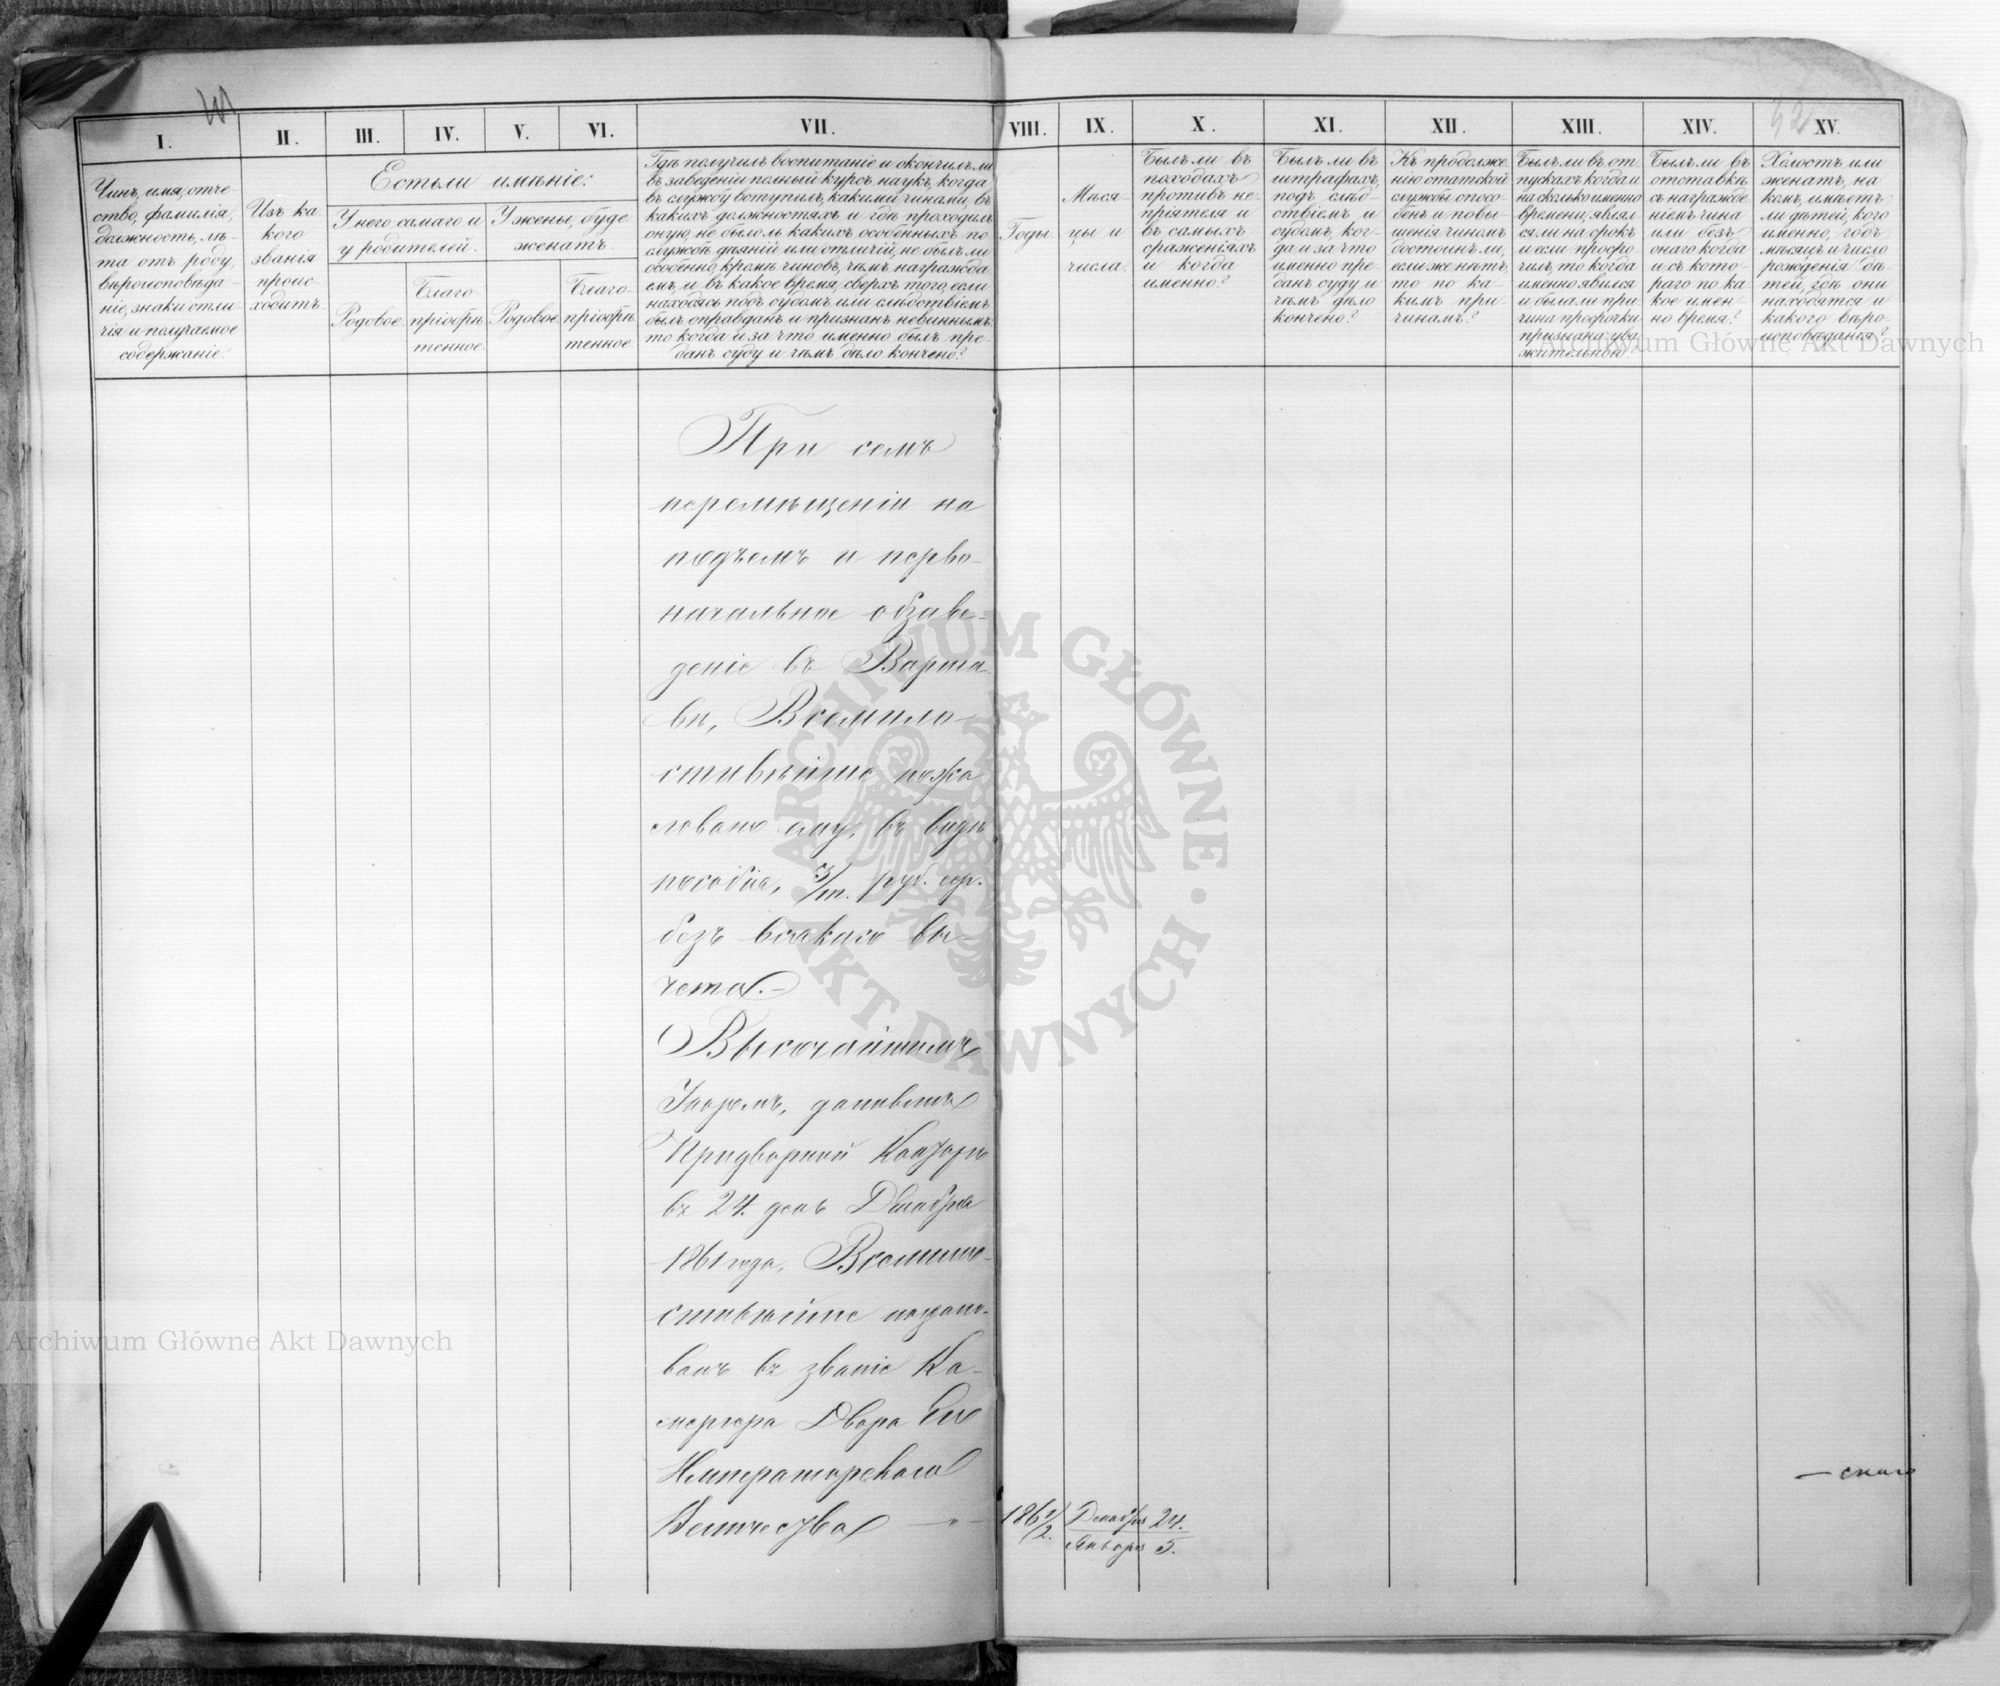 I.
II.
III.
IV.
V.
VI.
VII.
VIII.
IX.
X.
XI.
XII.
XIII.
XIV.
XV.
42
Чинъ, имя, отче
ство, фамилія,
должность, лѣ
та отъ роду,
вѣроисповѣда-
ніе, знаки отли
чія и получаемое
содержаніе.
Изъ ка
кого
званія
проис-
ходитъ.
Есть ли имѣніе:
У него самаго и
у родителей.
У жены, буде
женатъ.
Родовое.
Благо-
пріобрѣ
тенное.
Родовое.
Благо-
пріобрѣ
тенное.
Гдѣ получилъ воспитаніе и окончилъ ли
въ заведеніи полный курсъ наукъ, когда
въ службу вступилъ, какими чинами, въ
какихъ должностяхъ и гдѣ проходилъ
оную, не было ль какихъ особенныхъ по
службѣ дѣяній или отличій, не былъ ли
особенно, кромѣ чиновъ, чѣмъ награжда
емъ, и въ какое время, сверхъ того, если
находясь подъ судомъ или слѣдствіемъ
былъ оправданъ и признанъ невиннымъ,
то когда и за что именно былъ пре-
данъ суду и чѣмъ дѣло кончено?
Годы.
Мѣся-
цы и
числа.
Былъ ли въ
походахъ
противъ не-
пріятеля и
въ самыхъ
сраженіяхъ
и когда
именно?
Былъ ли въ
штрафахъ,
подъ слѣд-
ствіемъ и
судомъ, ког-
да и за что
именно пре-
данъ суду и
чѣмъ дѣло
кончено?
Къ продолже
нію статской
службы спосо-
бенъ и повы-
шенія чиномъ
достоинъ ли,
если же нѣтъ,
то по ка-
кимъ при-
чинамъ?
Былъ ли въ от-
пускахъ, когда и
на сколько именно
времени, являл-
ся ли на срокъ
и если просро-
чилъ, то когда
именно явился
и была ли при
чина просрочки
признана ува
жительною?
Былъ ли въ
отставкѣ
съ награжде
ніемъ чина
или безъ
онаго, когда
и съ кото-
раго по ка
кое имен-
но время?
Холостъ или
женатъ, на
комъ, имѣетъ
ли дѣтей, кого
именно, годъ
мѣсяцъ и число
рожденія дѣ-
тей, гдѣ они
находятся и
какого вѣро-
исповѣданія?
При семъ
перемѣщеніи на
подъемъ и перво-
начальное обзаве-
деніе въ Варша-
вѣ, Всемило-
стивѣйше пожа
ловано ему, въ видѣ
пособія, 3/m. руб. сер.
безъ всякаго вы-
чета.-
Высочайшимъ
Указомъ, даннымъ
Придворной Конторѣ
въ 24. день Декабря
1861 года, Всемило-
стивѣйше пожало-
ванъ въ званіе Ка-
мергера Двора Его
Императорскаго
Величества - " -
1861/2.
Декабря 24.
Января 5.
— скаго
Archiwum Główne Akt Dawnych
Archiwum Główne Akt Dawnych
ARCHIWUM GŁÓWNE · AKT DAWNYCH ·